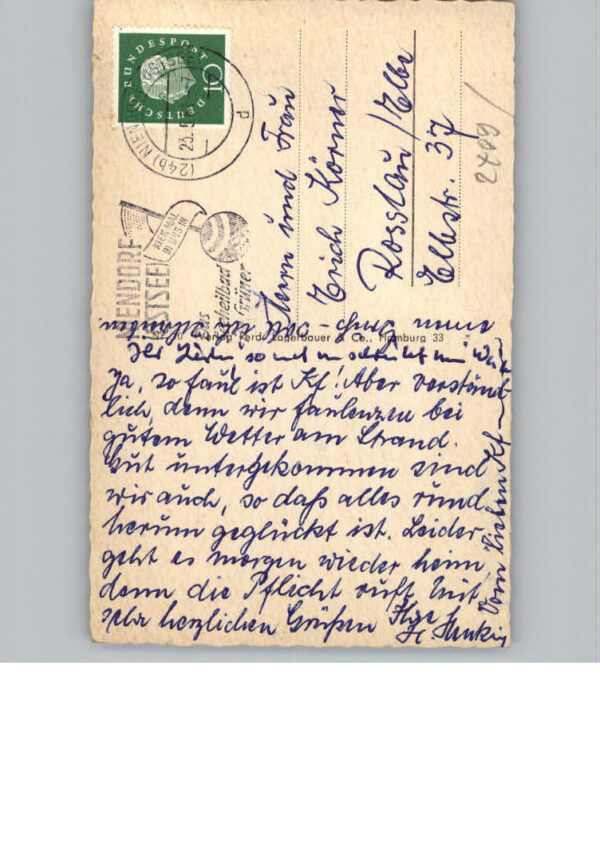 DEUTSCHE BUNDESPOST
10
(24b) NIENDORF
d
NIENDORF
(OSTSEE)
Das
Heilbad
2409
Herrn und Frau
Erich Körner
Rosslau / Elbe
Elbstr. 37
Verlag Ferd. Lagerbauer & Co., Hamburg 33
Ihr Lieben, so
Ja, so faul ist Kf! Aber verständ
lich, denn wir faulenzen bei
gutem Wetter am Strand.
Gut untergekommen sind
wir auch, so daß alles rund
herum geglückt ist. Leider
geht es morgen wieder heim
denn die Pflicht ruft. Mit
sehr herzlichen Grüßen